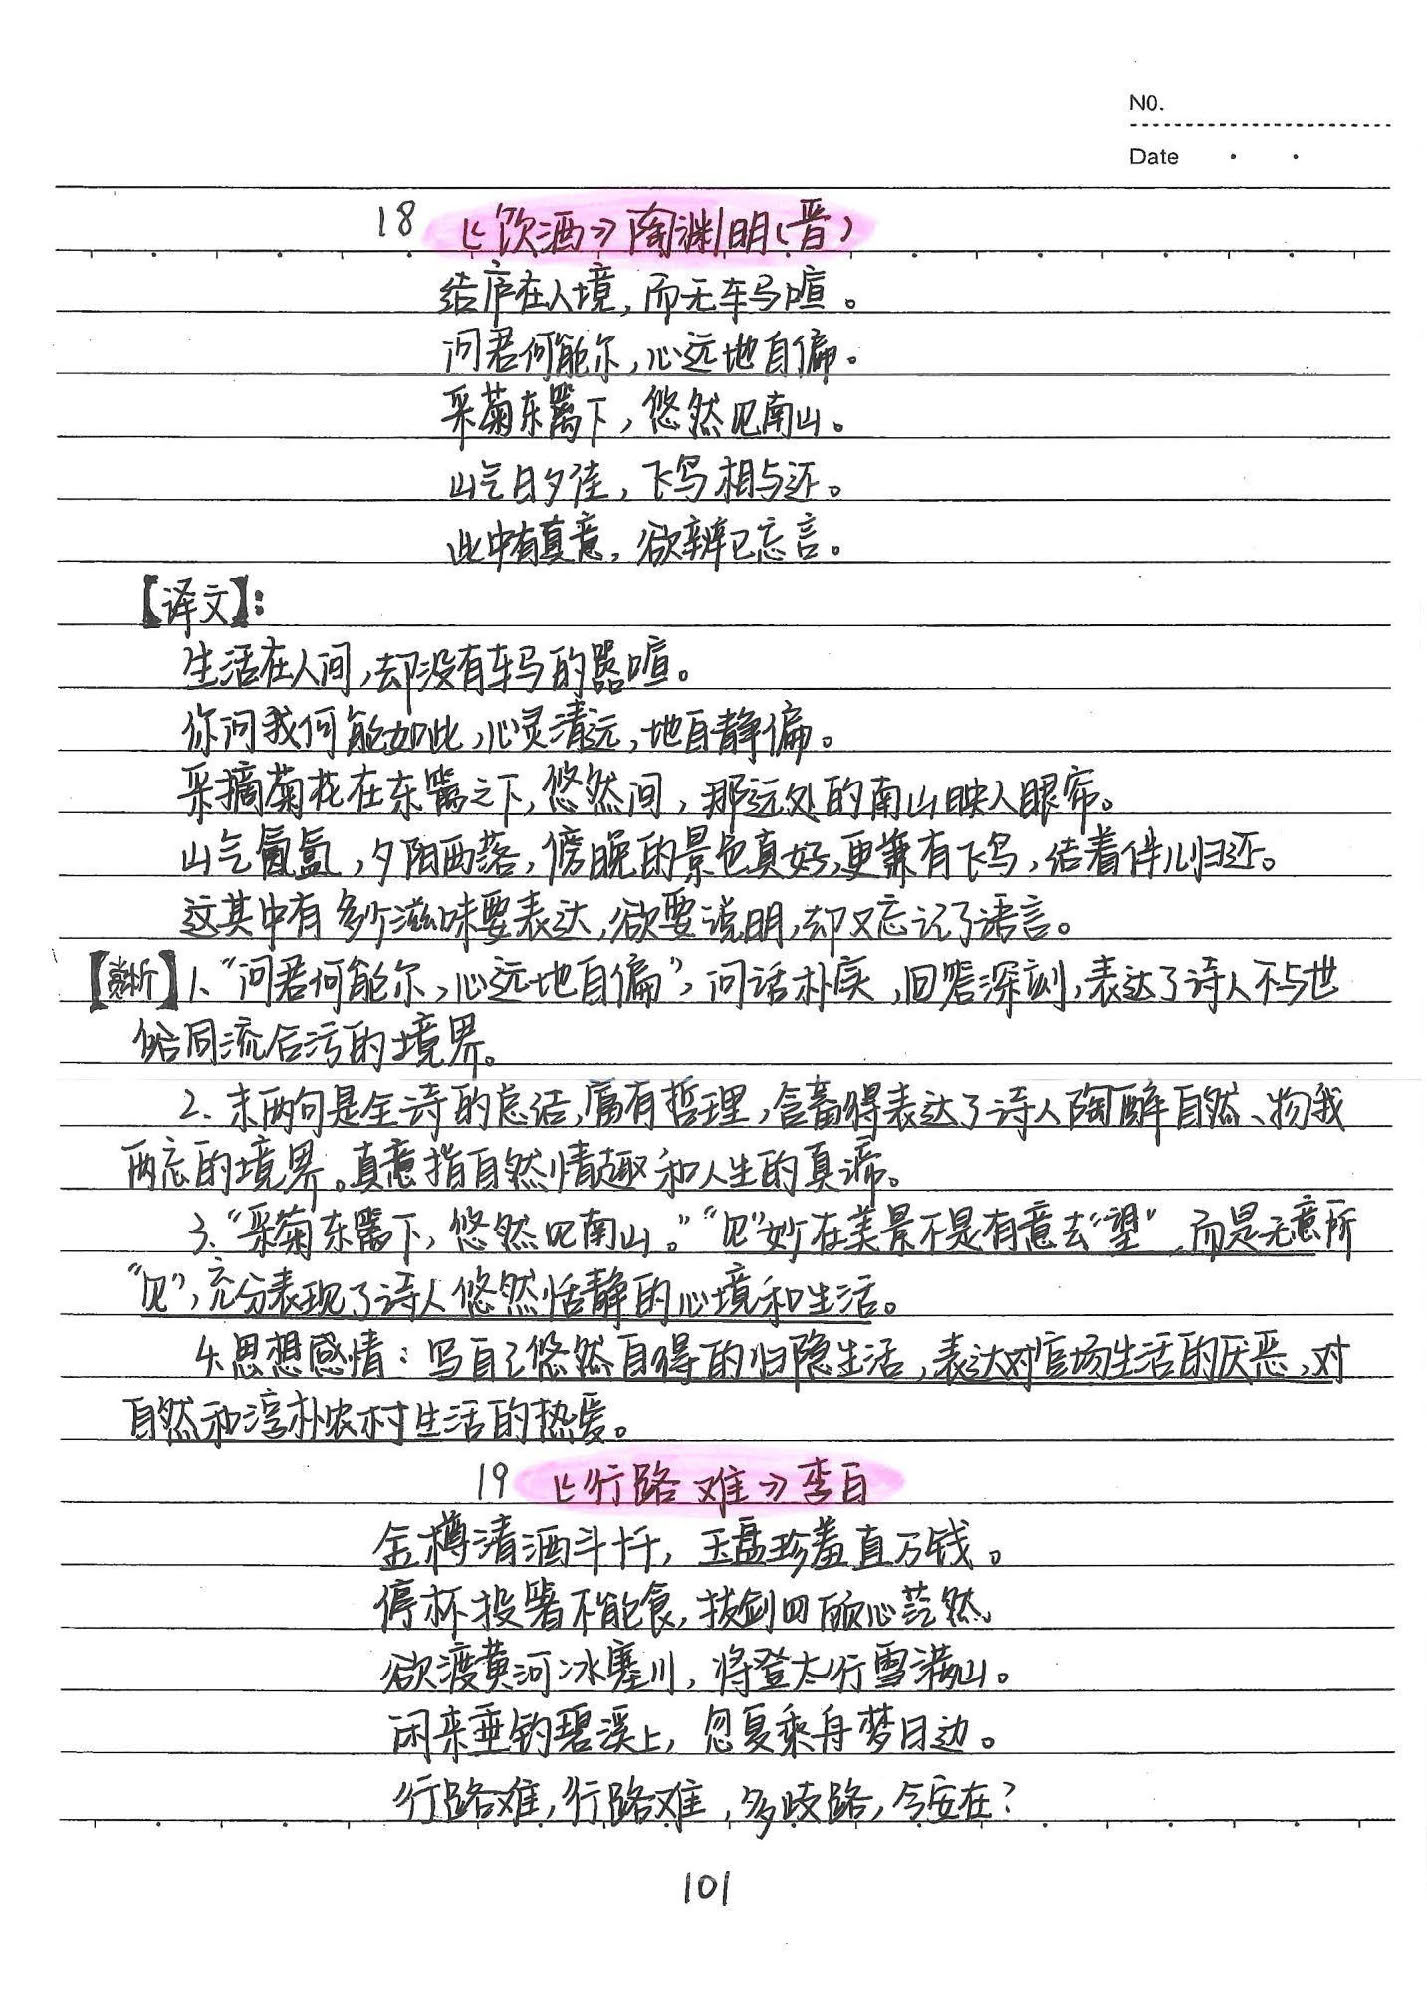 NO.
Date
18 《饮酒》陶渊明(晋)
结庐在人境,而无车马喧。
问君何能尔,心远地自偏。
采菊东篱下,悠然见南山。
山气日夕佳,飞鸟相与还。
此中有真意,欲辨已忘言。
【译文】:
生活在人间,却没有车马的嚣喧。
你问我何能如此,心灵清远,地自静偏。
采摘菊花在东篱之下,悠然间,那远处的南山映人眼帘。
山气氤氲,夕阳西落,傍晚的景色真好,更兼有飞鸟,结着伴儿归还。
这其中有多少滋味要表达,欲要说明,却又忘记了语言。
【赏析】1、“问君何能尔,心远地自偏”,问话朴实,回答深刻,表达了诗人不与世
俗同流合污的境界。
2、末两句是全诗的总结,富有哲理,含蓄得表达了诗人陶醉自然、物我
两忘的境界。真意指自然情趣和人生的真谛。
3、“采菊东篱下,悠然见南山。”“见”妙在美景不是有意去“望”,而是无意所
“见”,充分表现了诗人悠然恬静的心境和生活。
4.思想感情:写自己悠然自得的归隐生活,表达对官场生活的厌恶,对
自然和淳朴农村生活的热爱。
19 《行路难》李白
金樽清酒斗十千,玉盘珍羞直万钱。
停杯投箸不能食,拔剑四顾心茫然。
欲渡黄河冰塞川,将登太行雪满山。
闲来垂钓碧溪上,忽复乘舟梦日边。
行路难,行路难,多歧路,今安在?
101